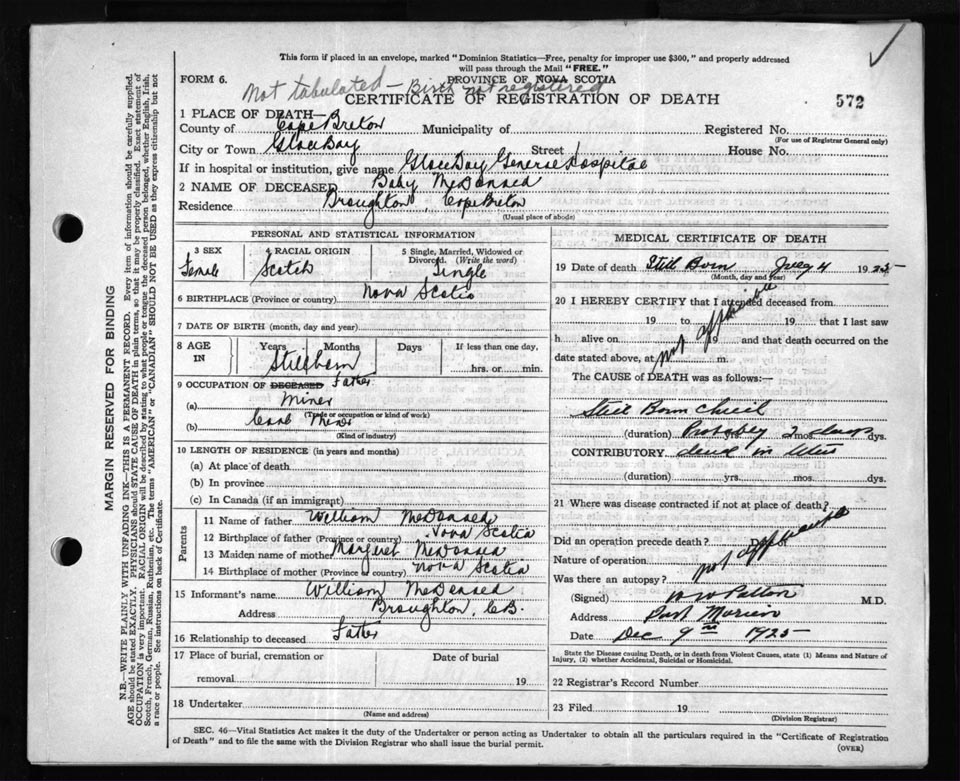 This form if placed in an envelope, marked "Dominion Statistics—Free, penalty for improper use $300," and properly addressed
will pass through the Mail "FREE."
FORM 6.
PROVINCE OF NOVA SCOTIA
Not tabulated — Birth not registered
CERTIFICATE OF REGISTRATION OF DEATH
572
1 PLACE OF DEATH—
County of Cape Breton Municipality of Registered No.
(For use of Registrar General only)
City or Town Glace Bay Street House No.
If in hospital or institution, give name Glace Bay General Hospital
2 NAME OF DECEASED Baby McDonald
Residence Broughton Cape Breton
(Usual place of abode)
PERSONAL AND STATISTICAL INFORMATION
3 SEX Female
4 RACIAL ORIGIN Scotch
5 Single, Married, Widowed or Divorced. (Write the word) Single
6 BIRTHPLACE (Province or country) Nova Scotia
7 DATE OF BIRTH (month, day and year)
8 AGE IN Years Months Days If less than one day, hrs. or min.
Stillborn
9 OCCUPATION OF DECEASED Father
(a) Miner
(Trade or occupation or kind of work)
(b) Coal Mines
(Kind of industry)
10 LENGTH OF RESIDENCE (in years and months)
(a) At place of death
(b) In province
(c) In Canada (if an immigrant)
Parents
11 Name of father William McDonald
12 Birthplace of father (Province or country) Nova Scotia
13 Maiden name of mother Margaret McDonald
14 Birthplace of mother (Province or country) Nova Scotia
15 Informant's name William McDonald
Address Broughton, C.B.
16 Relationship to deceased Father
17 Place of burial, cremation or removal Date of burial 19
18 Undertaker
(Name and address)
MEDICAL CERTIFICATE OF DEATH
19 Date of death Still Born July 4 1925
(Month, day and year)
20 I HEREBY CERTIFY that I attended deceased from
19 to 19 that I last saw
h alive on 19 and that death occurred on the
date stated above, at m.
not applicable
The CAUSE of DEATH was as follows:—
Still Born Child
(duration) Probably 2 days dys.
CONTRIBUTORY dead in utero
(duration) yrs. mos. dys.
21 Where was disease contracted if not at place of death?
Did an operation precede death? Date of
Nature of operation
not applicable
Was there an autopsy?
(Signed) Patton M.D.
Address Port Morien
Date Dec 9th 1925
State the Disease causing Death, or in death from Violent Causes, state (1) Means and Nature of
Injury, (2) whether Accidental, Suicidal or Homicidal.
22 Registrar's Record Number
23 Filed 19
(Division Registrar)
SEC. 46—Vital Statistics Act makes it the duty of the Undertaker or person acting as Undertaker to obtain all the particulars required in the "Certificate of Registration
of Death" and to file the same with the Division Registrar who shall issue the burial permit.
(OVER)
MARGIN RESERVED FOR BINDING
N.B.—WRITE PLAINLY WITH UNFADING INK—THIS IS A PERMANENT RECORD. Every item of information should be carefully supplied.
AGE should be stated EXACTLY. PHYSICIANS should STATE CAUSE OF DEATH in plain terms, so that it may be properly classified. Exact statement of
OCCUPATION is very important. RACIAL ORIGIN will be described by stating to what people or tongue the deceased person belonged, whether English, Irish,
Scotch, French, German, Russian, Ruthenian, etc. The terms "AMERICAN" or "CANADIAN" SHOULD NOT BE USED as they express citizenship but not
a race or people. See instructions on back of Certificate.